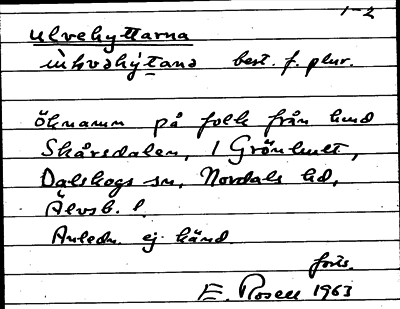 1-2
Ulvehyttarna
best. f. plur.
öknamn på folk från
Skårsdalen, i Grönhult,
Dalskogs sn, Nordals hd,
Älvsb. l.
Anledn. ej känd
forts.
E. Rosell 1963